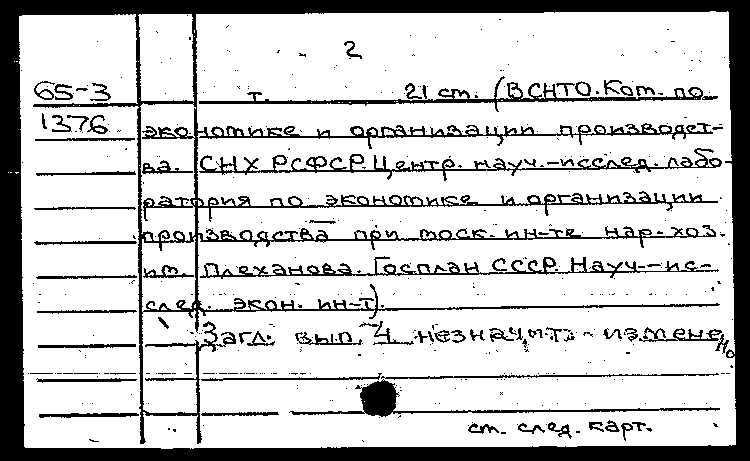 2
65-3 т. 21 см. (ВСНТО. Ком. по
1376 экономике и организации производст-
ва. СНХ РСФСР. Центр. науч.-исслед. лабо-
ратория по экономике и организации
производства при моск. ин-те нар. хоз.
им. Плеханова. Госплан СССР. Науч.-ис-
след. экон. ин-т).
Загл. вып. 4 незначит. измене
но
см. след. карт.